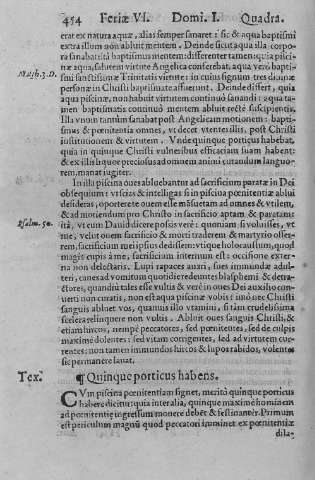 454 Feriæ VI. Domi. I. Quadra.
erat ex natura aquæ, alias semper sanaret: sic & aqua baptismi
extra illum non abluit mentem. Deinde sicut aqua illa corpo-
ra sanabat ita baptismus mentem: differenter tamen: quia pisci-
næ aqua, salutem virtute Angelica conferebat, aqua vero bapti-
smi sanctissimæ Trinitatis virtute: in cuius signum tres diuinæ
Math. 3. D.
personæ in Christi baptismate affuerunt. Deinde differt, quia
aqua piscinæ, non habuit virtutem continuo sanandi: aqua ta-
men baptismatis continuo mentem abluit recte suscipientis,
Illa vnum tantum sanabat post Angelicam motionem: bapti-
smus & pœnitentia omnes, vt decet vtentes illis, post Christi
institutionem & virtutem. Vnde quinque porticus habebat,
quia in quinque Christi vulneribus efficaciam suam habent:
& ex illis liquor preciosus ad omnem animi curandum languo-
rem, manat iugiter.
In illa piscina oues abluebantur ad sacrificium paratæ in Dei
obsequium: vt scias & intelligas si in piscina pœnitentiæ ablui
desideras, oportere te ouem esse mansuetam ad omnes & vtilem,
& ad moriendum pro Christo in sacrificio aptam & paratam
ita, vt cum Dauid dicere possis vere: quoniam si voluisses, vt-
Psalm. 50.
rem, sacrificium mei ipsius dedissem: vtique holocaustum, quod
magis cupis a me, sacrificium internum est: occisione exter-
na non delectaris. Lupi rapaces auari, sues immundæ adul-
teri, canes ad vomitum quotidie redeuntes blasphemi & detra-
ctores, quandiu tales esse vultis & vere in oues Dei auxilio con-
uerti non curatis, non est aqua piscinæ vobis: immo nec Christi
sanguis abluet vos, quamuis illo vtamini, si tam crudelissima
scelera relinquere non vultis. Abluit oues sanguis Christi, &
etiam lurcos, nempe peccatores, sed pœnitentes, sed de culpis
maxime dolentes: sed vitam corrigentes, sed ad virtutem cur-
rentes: non tamen immundos lurcos & lupos rabidos, volentes
sic permanere lauat.
Tex. ¶ Quinque porticus habens.
CVm piscina pœnitentiam signet, merito quinque porticus
habere dicitur: quia inter alia, quinque maxime hominem
ad pœnitentiæ ingressum mouere debet & festinanter. Primum
est periculum magnum quod peccatori imminet ex pœnitentiæ
dila-